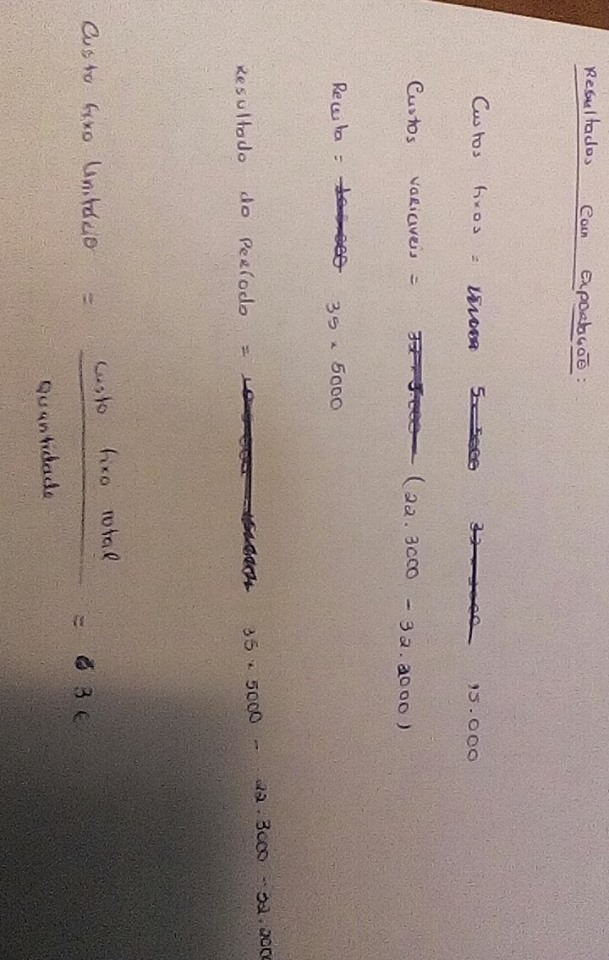 Resultados Com Exportação:
Custos fixos = 15.000
Custos variaveis = (22.3000 - 32.2000)
Receita = 35 × 5000
Resultado do Período = 35 × 5000 - 22.3000 - 32.2000
Custo fixo Unitário = Custo fixo total
Quantidade
= 3 €